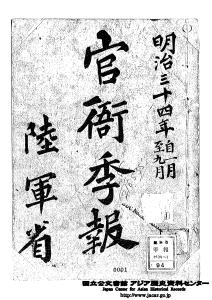 明治三十四年自一月至九月
官衙季報
陸軍省
94
0001
国立公文書館 アジア歴史資料センター
Japan Center for Asian Historical Records
http://www.jacar.go.jp